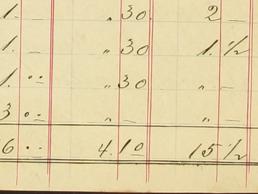 1. „ 30. 2 –
1. – „ 30 1. ½
1. „ „ 30 „ –
3 „ – „ – „ –
6 „ – 4. 10 15 ½